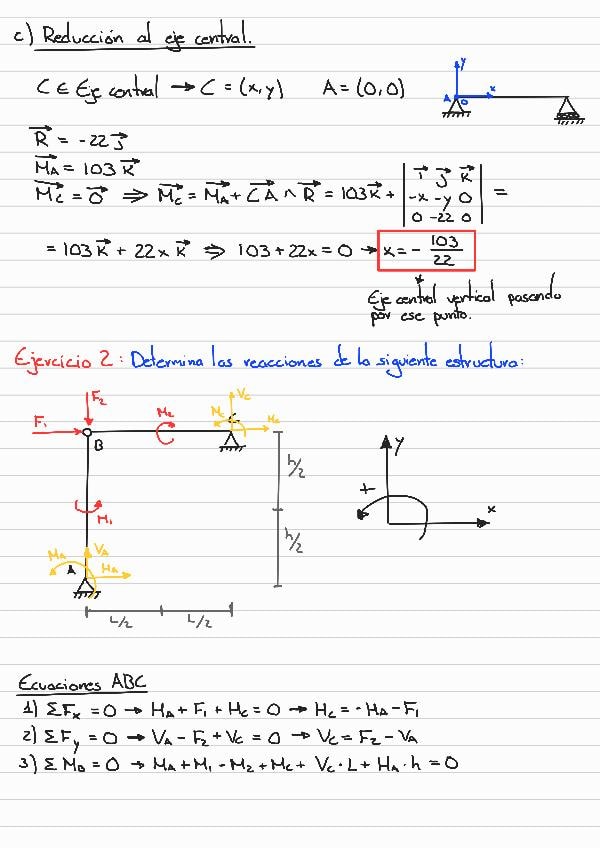 c) Reducción al eje central.
C ∈ Eje central → C = (x, y)   A = (0,0)
y
A
O
x
R⃗ = -22 J⃗
M⃗A = 103 K⃗
M⃗C = 0⃗ ⇒ M⃗C = M⃗A + C⃗A ∧ R⃗ = 103 K⃗ + | I⃗ J⃗ K⃗ | =
-x -y 0
0 -22 0
= 103 K⃗ + 22x K⃗ ⇒ 103 + 22x = 0 → x = - 103/22
Eje central vertical pasando
por ese punto.
Ejercicio 2: Determina las reacciones de la siguiente estructura:
F2
VC
F1
M2
MC
C
HC
B
h/2
y
+
x
M1
h/2
MA
VA
A
HA
L/2
L/2
Ecuaciones ABC
1) ΣFx = 0 → HA + F1 + HC = 0 → HC = -HA - F1
2) ΣFy = 0 → VA - F2 + VC = 0 → VC = F2 - VA
3) ΣMB = 0 → MA + M1 - M2 + MC + VC · L + HA · h = 0